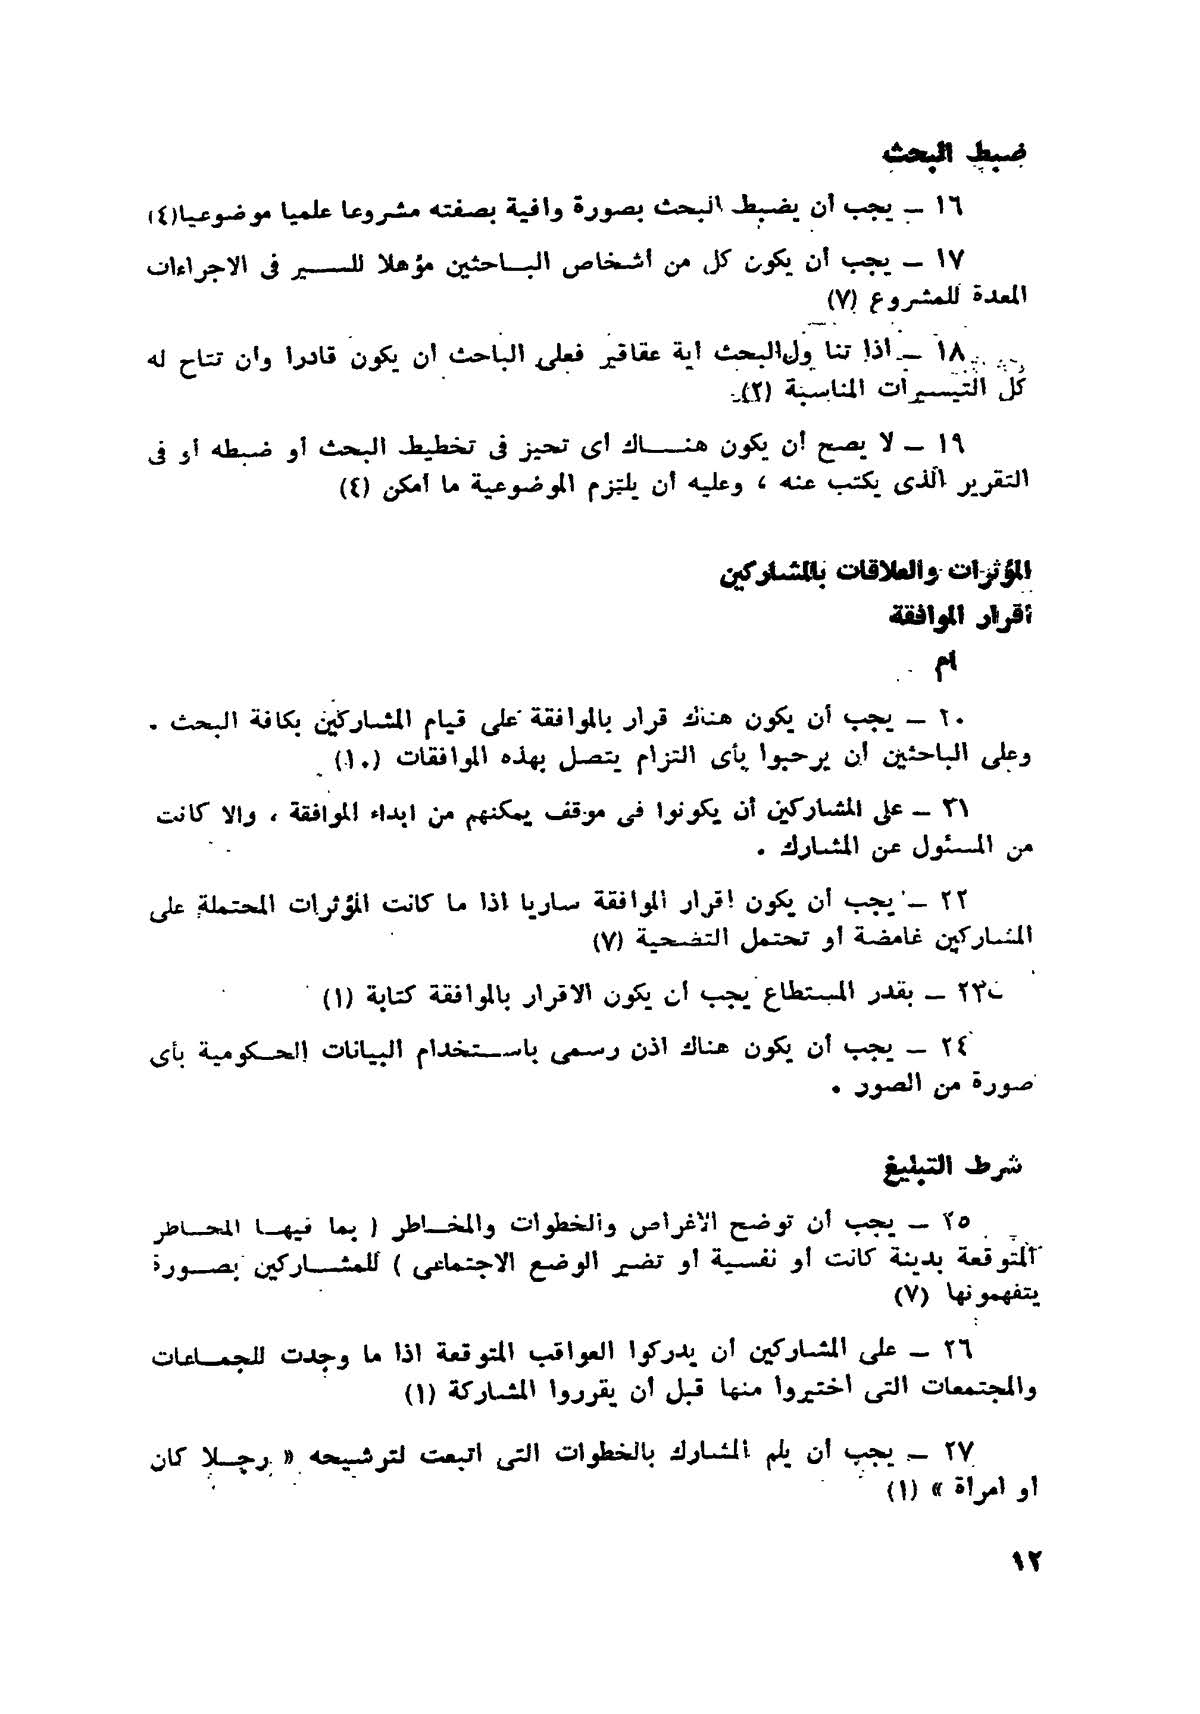 ضبط البحث
١٦ ــ يجب أن يضبط البحث بصورة وافية بصفته مشروعا علميا موضوعيا(٤)
١٧ ــ يجب أن يكون كل من أشخاص البـاحثين مؤهلا للســـير فى الاجراءات
المعدة للمشروع (٧)
١٨ ــ اذا تنا ول البحث أية عقاقير فعلى الباحث أن يكون قادرا وأن تتاح له
كل التيسيرات المناسبة (٢)
١٩ ــ لا يصح أن يكون هنـــاك أى تحيز فى تخطيط البحث أو ضبطه أو فى
التقرير الذى يكتب عنه ، وعليه أن يلتزم الموضوعية ما أمكن (٤)
المؤثرات والعلاقات بالمشاركين
أقرار الموافقة
أم
٢٠ ــ يجب أن يكون هناك قرار بالموافقة على قيام المشاركين بكافة البحث .
وعلى الباحثين أن يرحبوا بأى التزام يتصل بهذه الموافقات (١٠)
٢١ ــ على المشاركين أن يكونوا فى موقف يمكنهم من ابداء الموافقة ، والا كانت
من المسئول عن المشارك .
٢٢ ــ يجب أن يكون اقرار الموافقة ساريا اذا ما كانت المؤثرات المحتملة على
المشاركين غامضة أو تحتمل التضحية (٧)
٢٣ ــ بقدر المستطاع يجب أن يكون الاقرار بالموافقة كتابة (١)
٢٤ ــ يجب أن يكون هناك اذن رسمى باســتخدام البيانات الحـكومية بأى
صورة من الصور .
شرط التبليغ
٢٥ ــ يجب أن توضح الأغراض والخطوات والمخـاطر ( بما فيهـا المخـاطر
المتوقعة بدينة كانت أو نفسية أو تضير الوضع الاجتماعى ) للمشـــاركين بصـــورة
يتفهمونها (٧)
٢٦ ــ على المشاركين أن يدركوا العواقب المتوقعة اذا ما وجدت للجمـاعات
والمجتمعات التى اختيروا منها قبل أن يقرروا المشاركة (١)
٢٧ ــ يجب أن يلم المشارك بالخطوات التى اتبعت لترشيحه « رجــلا كان
أو امرأة » (١)
١٢